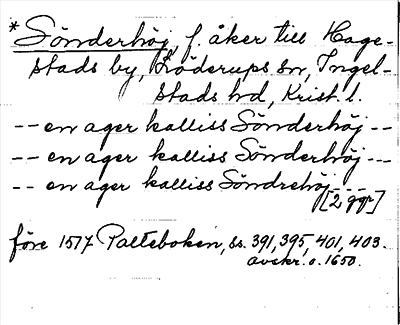 * Sönderhöj, f. åker till Hage-
stads by, Löderups sn, Ingel-
stads hd, Krist. l.
-- en ager kalliss Sönderhöj --
-- en ager kalliss Sönderhöj --
-- en ager kalliss Söndrehöj --
[2 ggr]
före 1577 Palteboken, ss. 391, 395, 401, 403.
avskr. o. 1650.